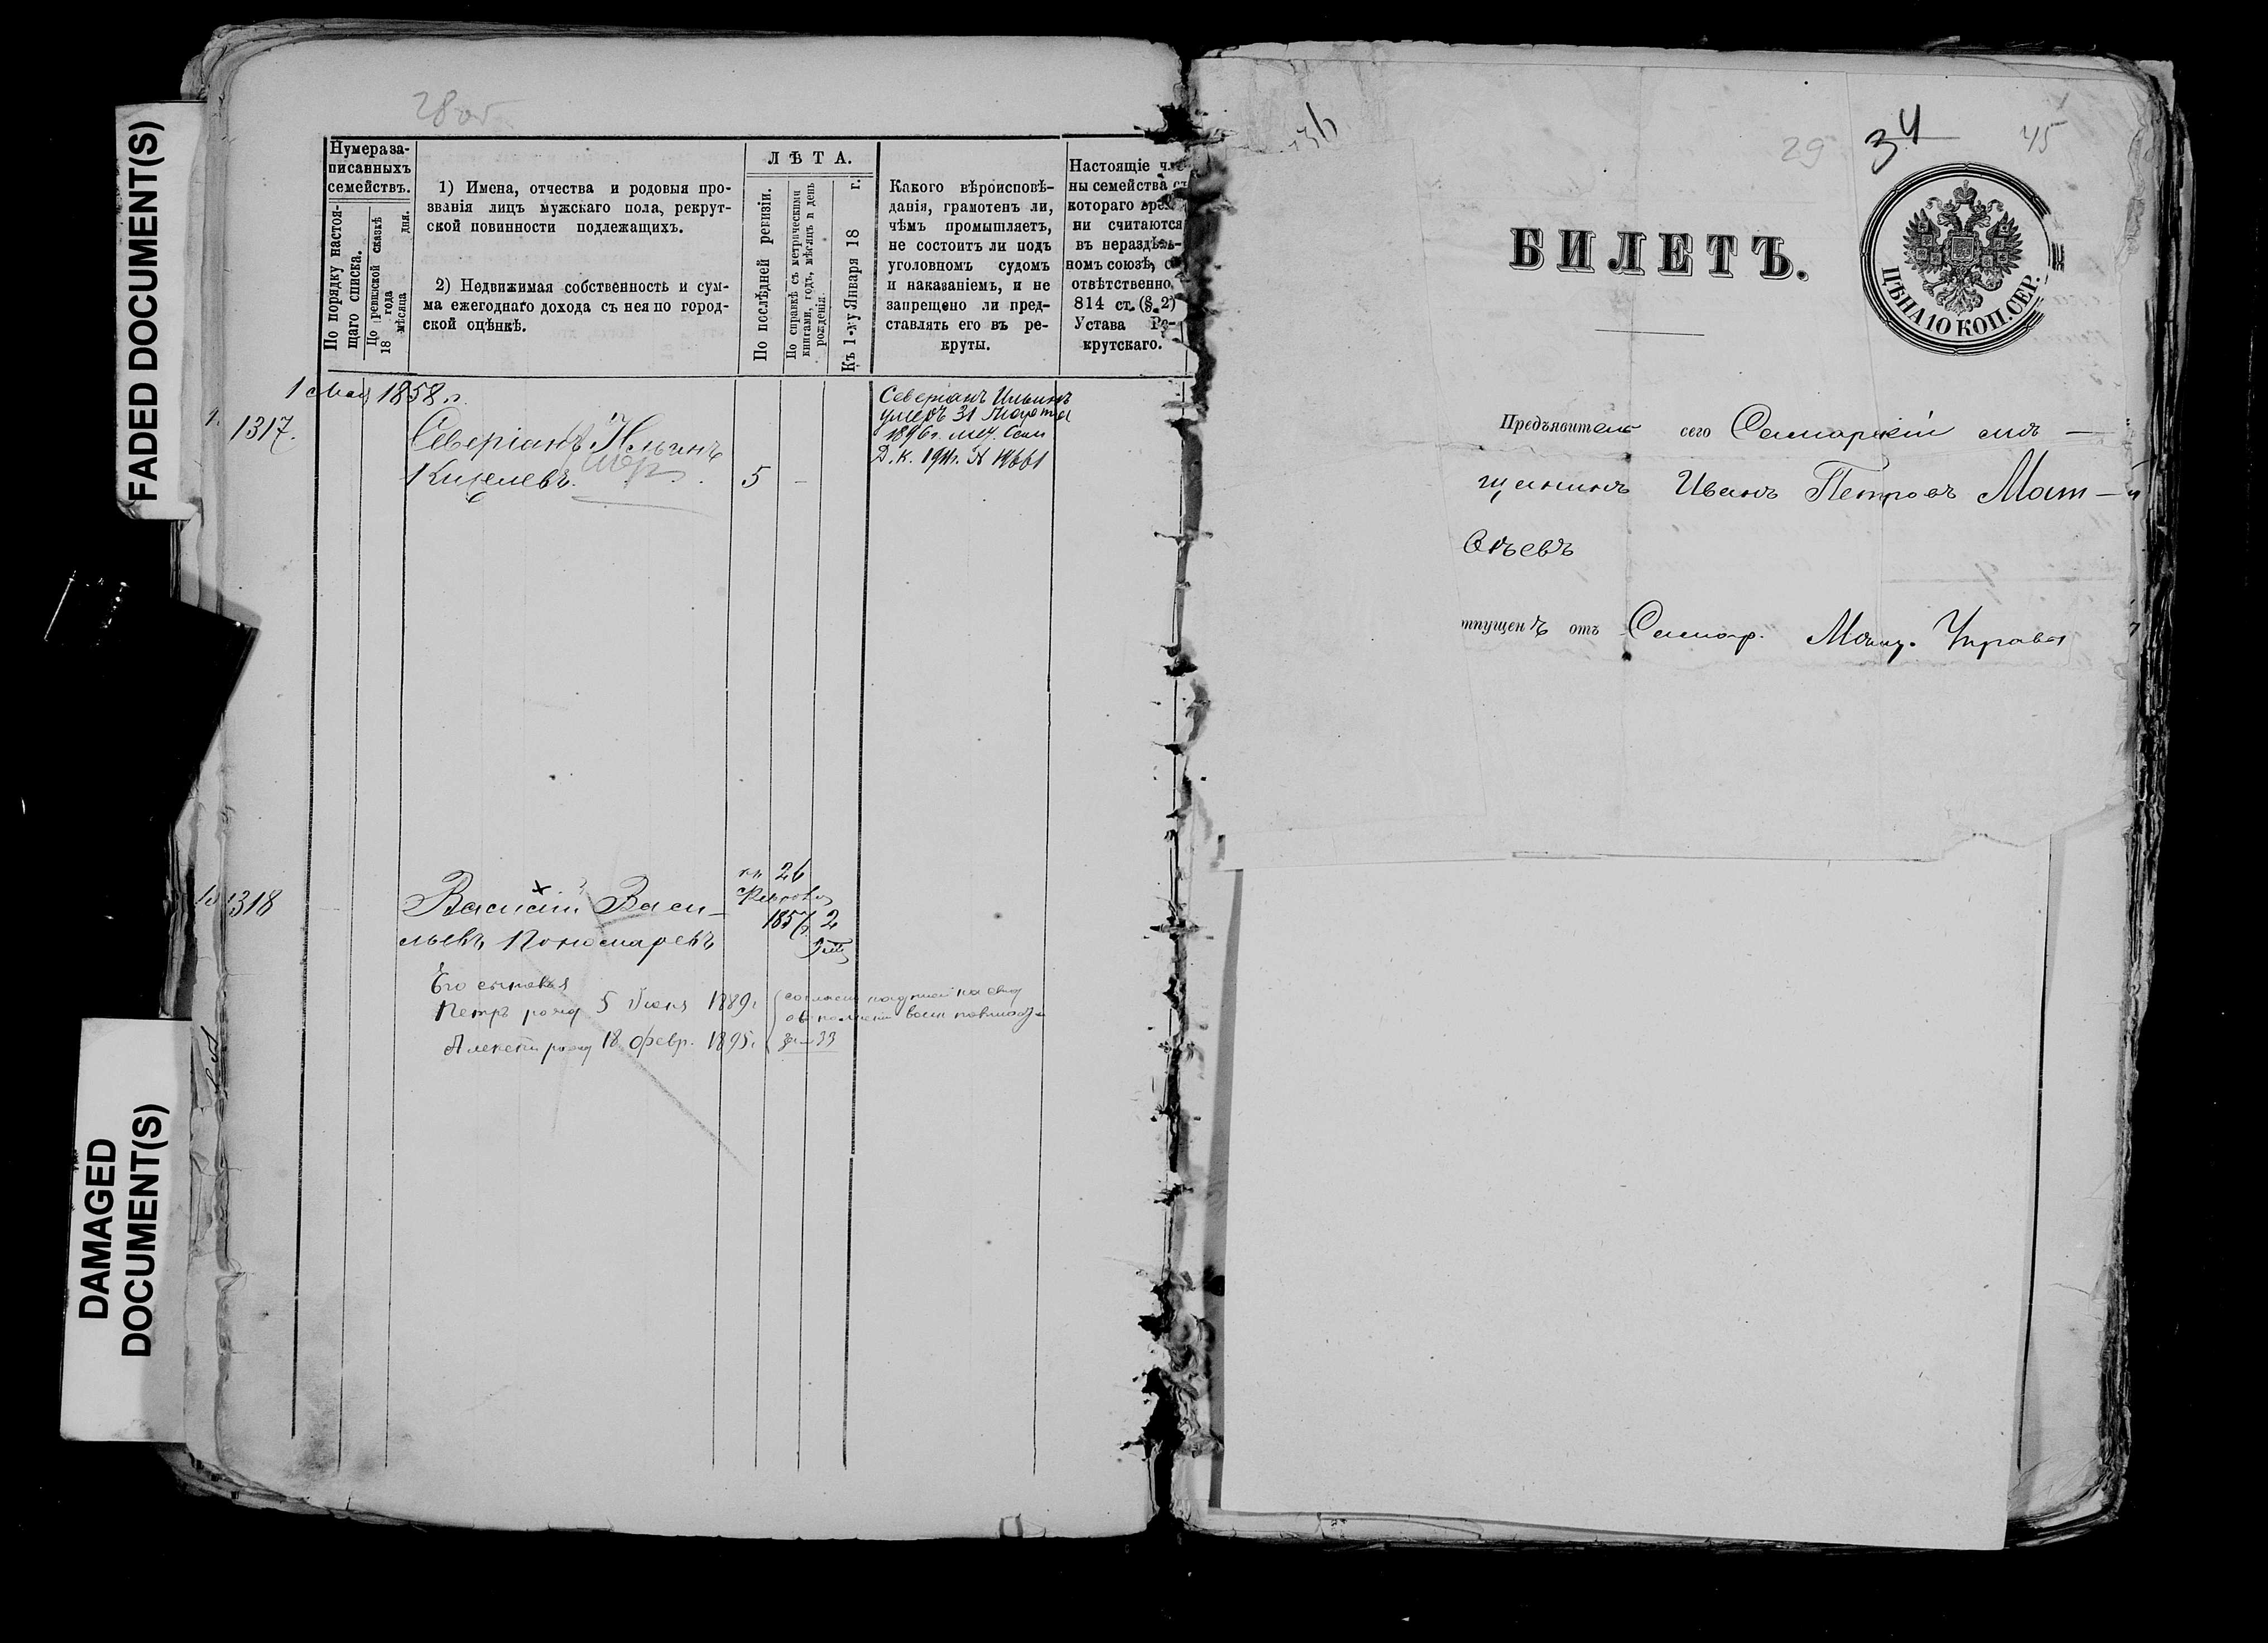 FADED DOCUMENT(S)
DAMAGED
DOCUMENT(S)
28об
Нумера за-
писанныхъ
семействъ.
По порядку настоя-
щаго списка.
По ревизской сказкѣ
18 года
мѣсяца дня.
1) Имена, отчества и родовыя про-
званія лицъ мужскаго пола, рекрут-
ской повинности подлежащихъ.
2) Недвижимая собственность и сум-
ма ежегоднаго дохода съ нея по город-
ской оцѣнкѣ.
ЛѢТА.
По послѣдней ревизіи.
По справкѣ съ метрическими
книгами, годъ, мѣсяцъ и день
рожденія.
Къ 1-му Января 18 г.
Какого вѣроисповѣ-
данія, грамотенъ ли,
чѣмъ промышляетъ,
не состоитъ ли подъ
уголовномъ судомъ
и наказаніемъ, и не
запрещено ли пред-
ставлять его въ ре-
круты.
Настоящіе чле-
ны семейства съ
котораго вре-
ни считаются
въ нераздѣль-
номъ союзѣ,
отвѣтственно
814 ст. (§ 2)
Устава Ре-
крутскаго.
1 Мая 1858 г.
1317.
Северіанъ Ильинъ
Киселевъ. 5 -
Северіанъ Ильинъ
умеръ 31 Марта
1896 г.
Д. К. 1911.
1318
Василій Васи-
льевъ Пономаревъ
26
Февраля
1857 г. 2
Его сыновья
Петръ род 5 Іюня 1889 г.
Алексей род 18 февр. 1895 г.
29 34 45
БИЛЕТЪ.
ЦѢНА 10 КОП. СЕР.
Предъявитель сего Самарскій мѣ-
щанинъ Иванъ Петровъ Мат-
вѣевъ
тпущенъ отъ Самар. Мѣщ. Управы